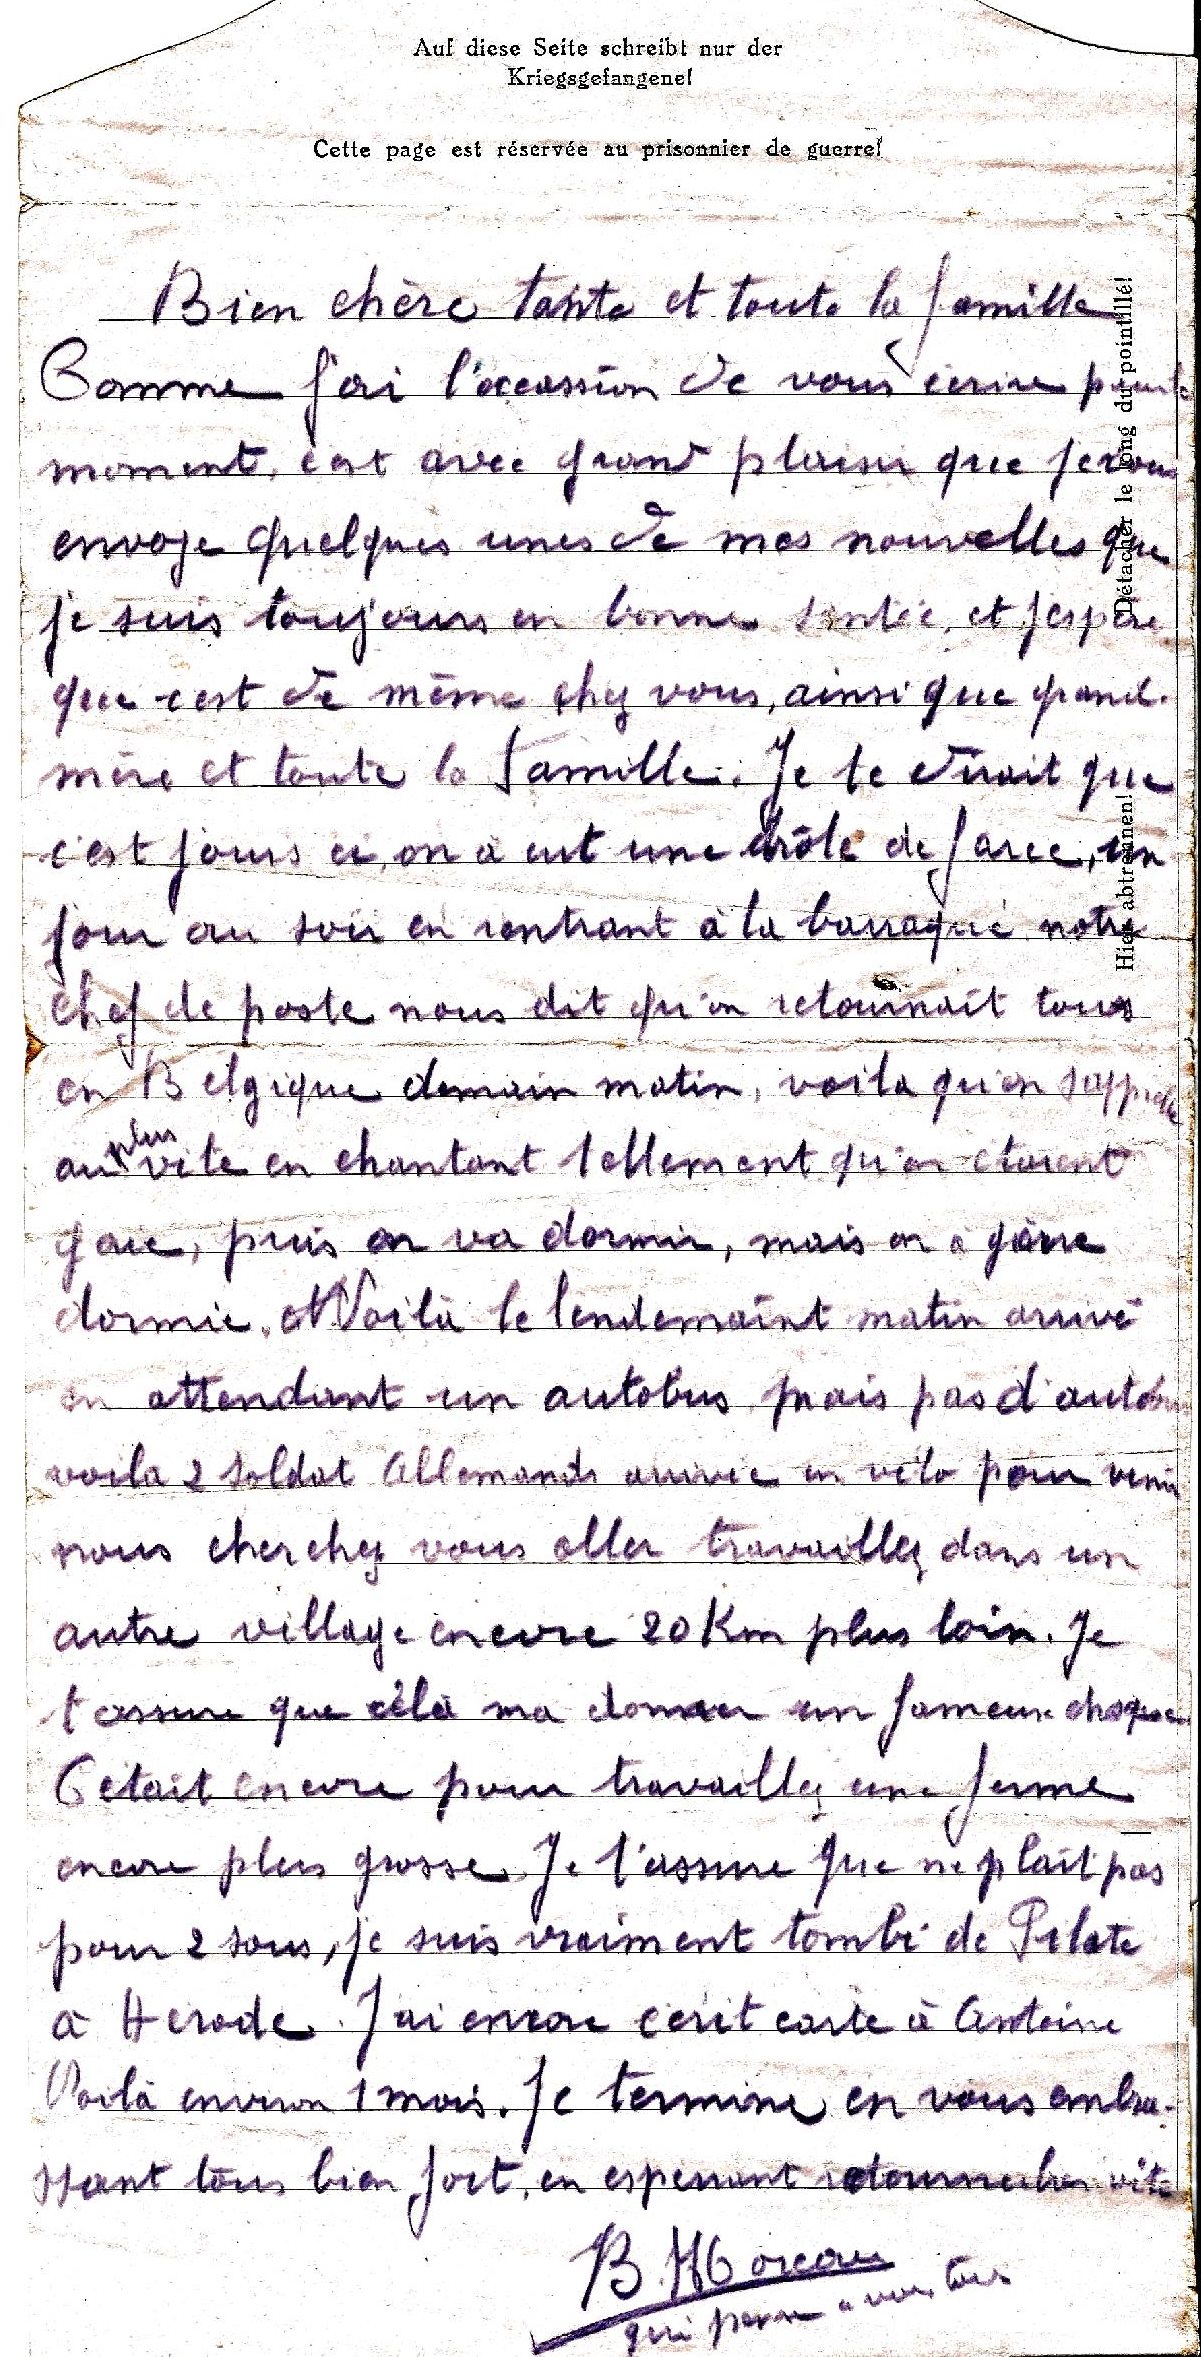 Auf diese Seite schreibt nur der
Kriegsgefangene!
Cette page est réservée au prisonnier de guerre!
Bien chère tante et toute la famille
Comme j'ai l'occassion de vous écrire pour le
moment, c'est avec grand plaisir que je vous
envoye quelques unes de mes nouvelles que
je suis toujours en bonne santée, et j'espère
que c'est de même chez vous, ainsi que grand-
mère et toute la famille. Je te dirait que
c'est jours ci, on a eut une drôle de farce, un
jour au soir en rentrant à la barraque notre
chef de poste nous dit qu'on retournait tous
en Belgique demain matin, voila qu'on s'apprette
au plus vite en chantant tellement qu'on étaient
gaie, puis on va dormir, mais on a gère
dormie. Voilà le lendemaint matin arrivé
on attendant un autobus mais pas d'autobus
voila 2 soldat Allemands arrivée en vélo pour venir
nous cherchez vous aller travaillez dans un
autre village encore 20 Km plus loin. Je
t'assure que cèla ma donner un fameux choque
C'était encore pour travaillez une ferme
encore plus grosse. Je t'assure que ne plait pas
pour 2 sous, je suis vraiment tombé de Pilate
à Herode. J'ai encore écrit carte à Antoine
Voilà environ 1 mois. Je termine en vous embra-
ssant tous bien fort, en esperant retourner vite
B. Moreau
qui pense a vous tous
Hier abtrennen! Détacher le long du pointillé!